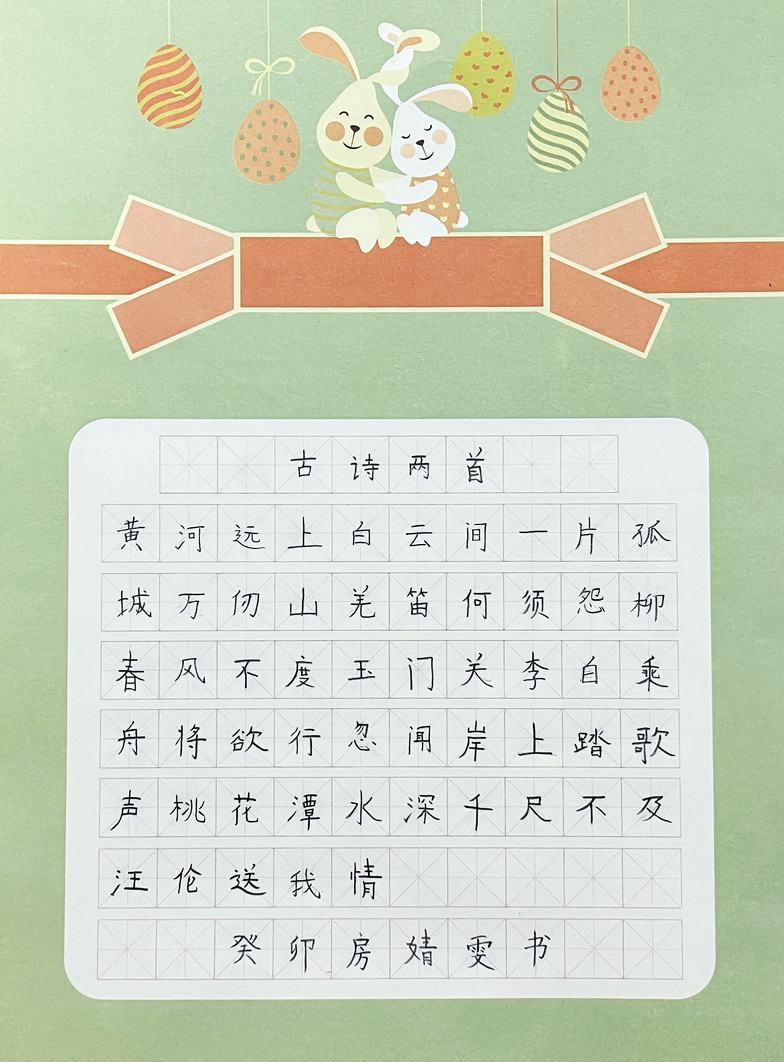 古诗两首
黄河远上白云间一片孤
城万仞山羌笛何须怨柳
春风不度玉门关李自乘
舟将欲行忽闻岸上踏歌
声桃花潭水深千尺不及
汪伦送我情
癸卯房婧雯书